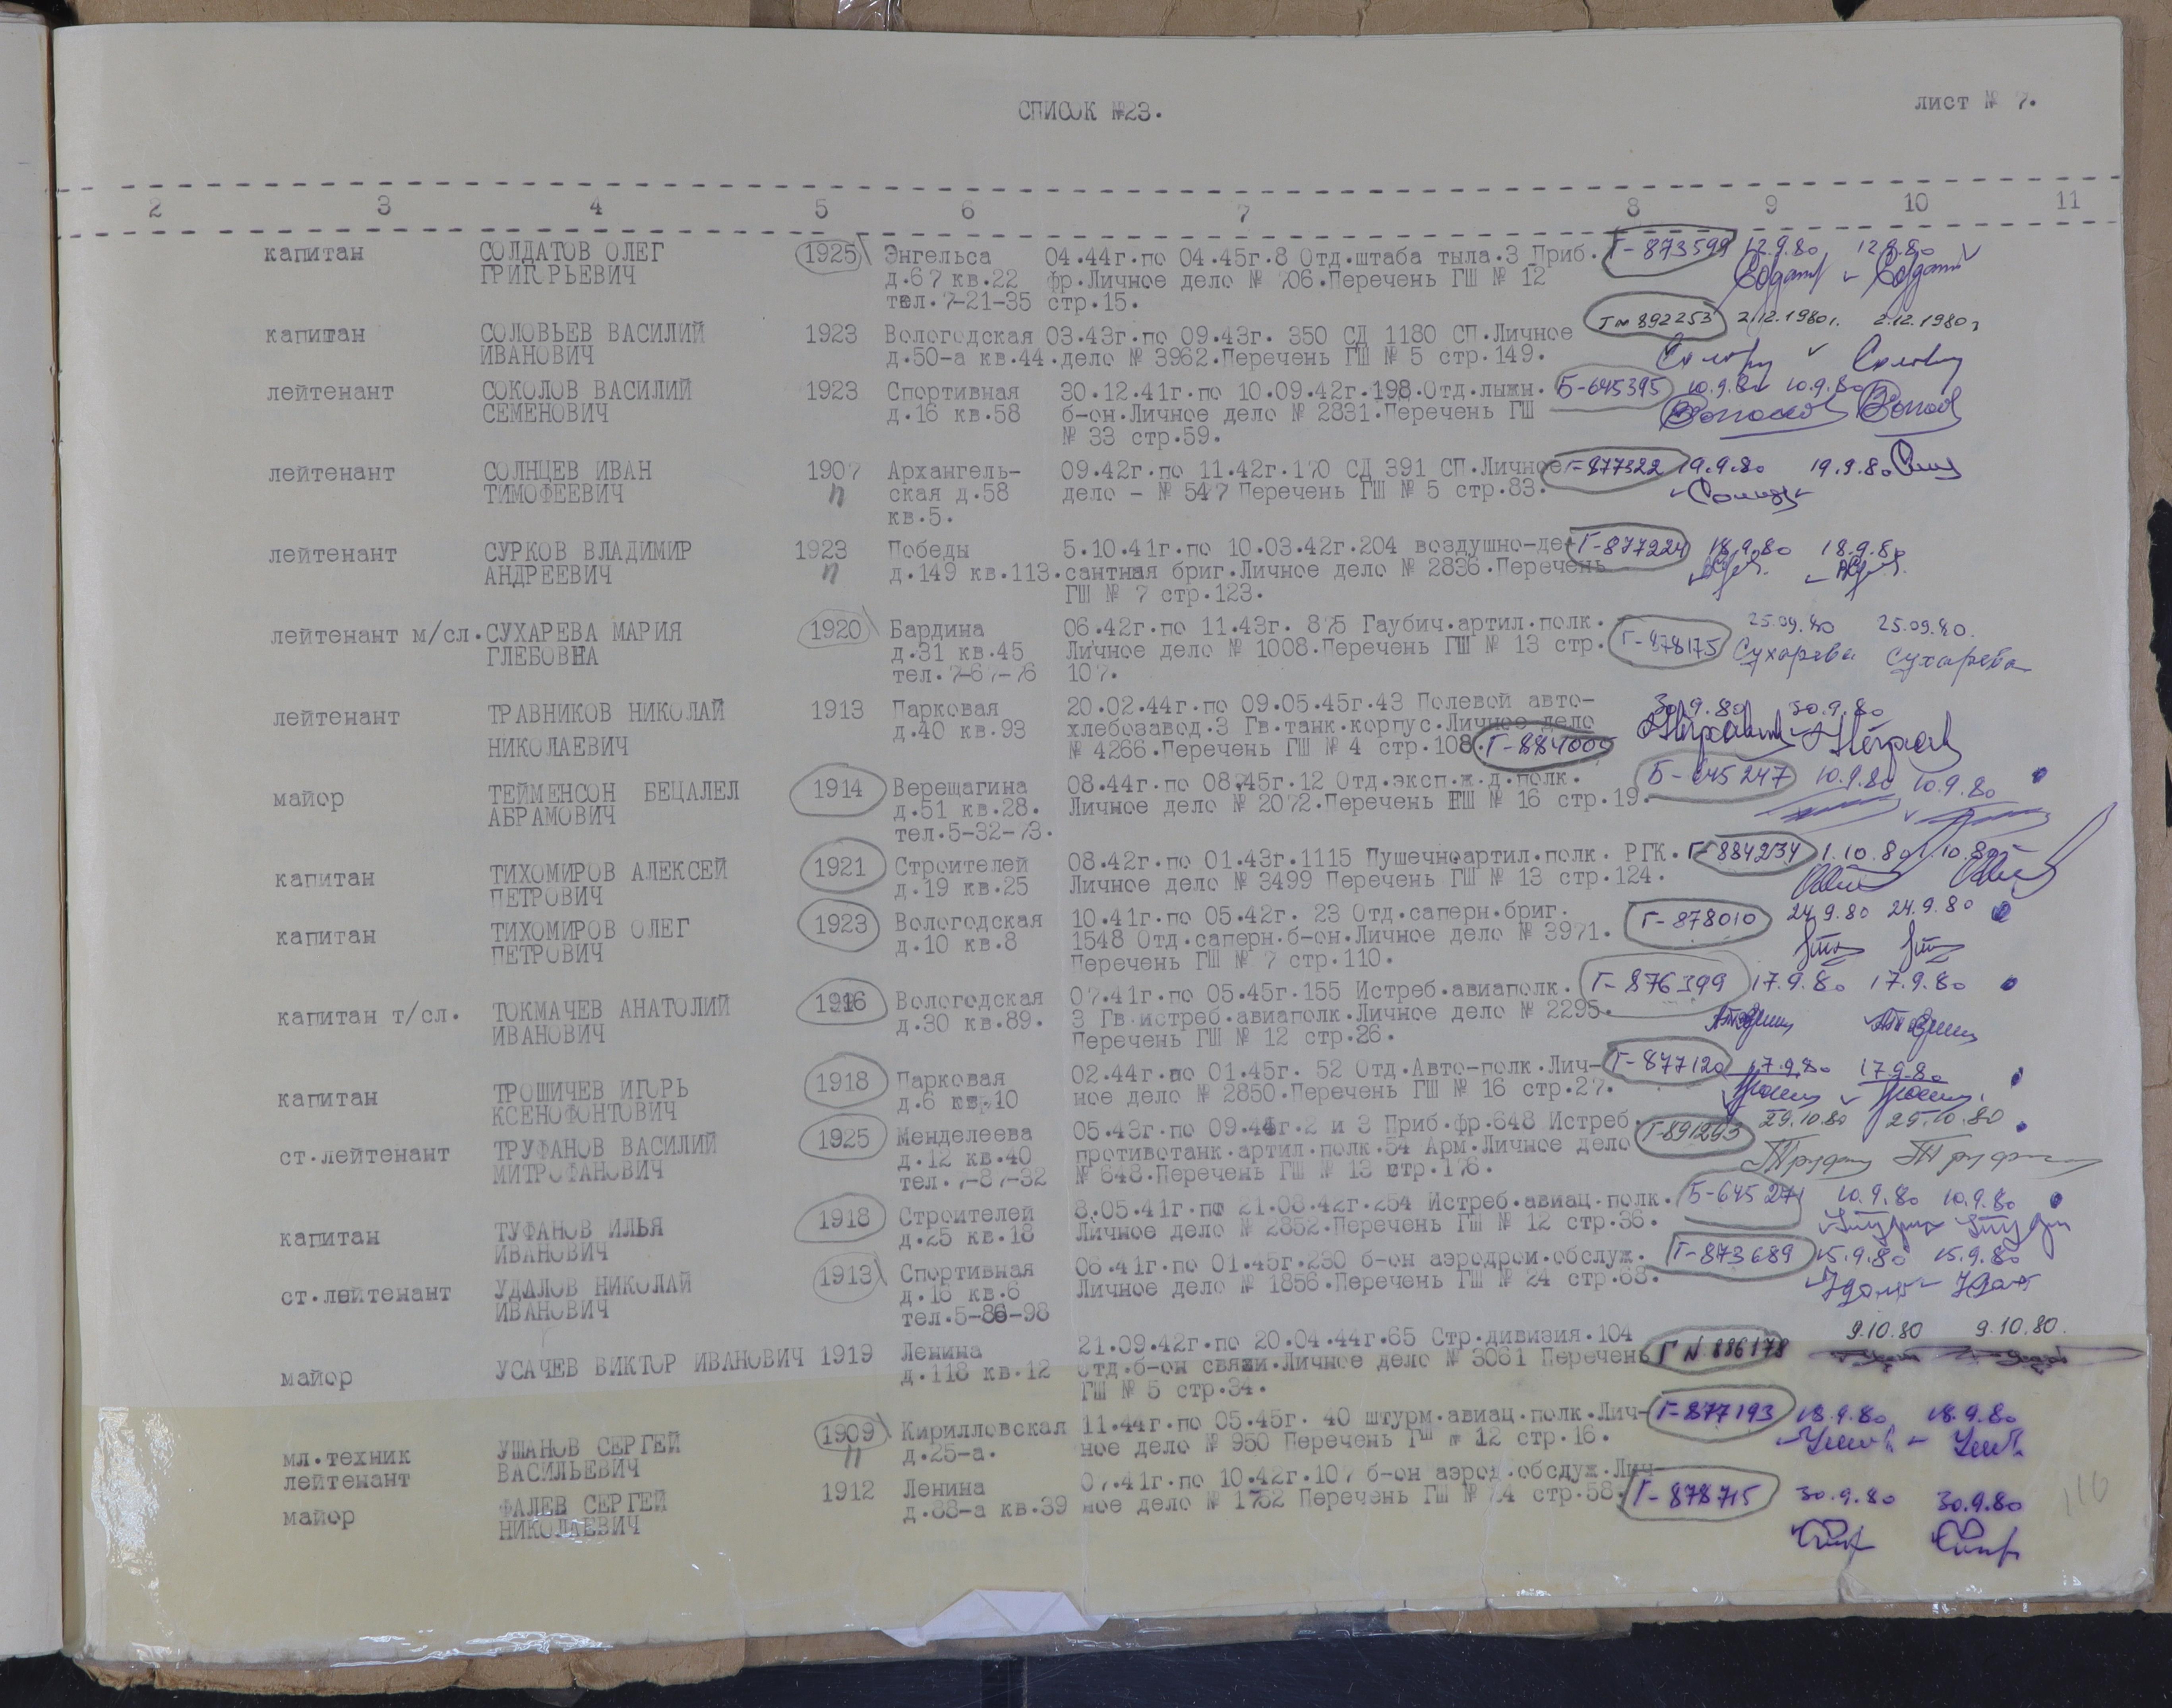 СПИСОК №23.
лист № 7.
2 3 4 5 6 7 8 9 10 11
капитан СОЛДАТОВ ОЛЕГ 1925 Энгельса 04.44г.по 04.45г.8 Отд.штаба тыла.3 Приб. Г-873599 12.9.80 12.9.80
ГРИГОРЬЕВИЧ д.67 кв.22 фр.Личное дело № 706.Перечень ГШ № 12
тел.7-21-35 стр.15.
капитан СОЛОВЬЕВ ВАСИЛИЙ 1923 Вологодская 03.43г.по 09.43г. 350 СД 1180 СП.Личное Г № 892253 2.12.1980г. 2.12.1980г
ИВАНОВИЧ д.50-а кв.44.дело № 3962.Перечень ГШ № 5 стр.149.
лейтенант СОКОЛОВ ВАСИЛИЙ 1923 Спортивная 30.12.41г.по 10.09.42г.198.Отд.лыжн. Б-645395 10.9.80 10.9.80
СЕМЕНОВИЧ д.16 кв.58 б-он.Личное дело № 2831.Перечень ГШ
№ 33 стр.59.
лейтенант СОЛНЦЕВ ИВАН 1907 Архангель- 09.42г.по 11.42г.170 СД 391 СП.Личное Г-877322 19.9.80 19.9.80
ТИМОФЕЕВИЧ п ская д.58 дело - № 547 Перечень ГШ № 5 стр.83.
кв.5.
лейтенант СУРКОВ ВЛАДИМИР 1923 Победы 5.10.41г.по 10.03.42г.204 воздушно-де- Г-877224 18.9.80 18.9.80
АНДРЕЕВИЧ п д.149 кв.113.сантная бриг.Личное дело № 2836.Перечень
ГШ № 7 стр.123.
лейтенант м/сл.СУХАРЕВА МАРИЯ 1920 Бардина 06.42г.по 11.43г. 875 Гаубич.артил.полк. 25.09.80 25.09.80.
ГЛЕБОВНА д.31 кв.45 Личное дело № 1008.Перечень ГШ № 13 стр. Г-878175 Сухарева Сухарева
тел.7-67-76 107.
лейтенант ТРАВНИКОВ НИКОЛАЙ 1913 Парковая 20.02.44г.по 09.05.45г.43 Полевой авто- 30.9.80 30.9.80
д.40 кв.93 хлебозавод.3 Гв.танк.корпус.Личное дело
НИКОЛАЕВИЧ № 4266.Перечень ГШ № 4 стр.108. Г-884005
майор ТЕЙМЕНСОН БЕЦАЛЕЛ 1914 Верещагина 08.44г.по 08.45г.12 Отд.эксп.ж.д.полк. Б-645247 10.9.80 10.9.80
АБРАМОВИЧ д.51 кв.28. Личное дело № 2072.Перечень ГШ № 16 стр.19.
тел.5-32-73.
капитан ТИХОМИРОВ АЛЕКСЕЙ 1921 Строителей 08.42г.по 01.43г.1115 Пушечноартил.полк. РГК. Г-884234 1.10.80 1.10.80
ПЕТРОВИЧ д.19 кв.25 Личное дело № 3499 Перечень ГШ № 13 стр.124.
капитан ТИХОМИРОВ ОЛЕГ 1923 Вологодская 10.41г.по 05.42г. 23 Отд.саперн.бриг. Г-878010 24.9.80 24.9.80
ПЕТРОВИЧ д.10 кв.8 1548 Отд.саперн.б-он.Личное дело № 3971.
Перечень ГШ № 7 стр.110.
капитан т/сл. ТОКМАЧЕВ АНАТОЛИЙ 1916 Вологодская 07.41г.по 05.45г.155 Истреб.авиаполк. Г-876399 17.9.80 17.9.80
ИВАНОВИЧ д.30 кв.89. 3 Гв.истреб.авиаполк.Личное дело № 2295.
Перечень ГШ № 12 стр.26.
капитан ТРОШИЧЕВ ИГОРЬ 1918 Парковая 02.44г.по 01.45г. 52 Отд.Авто-полк.Лич- Г-877120 17.9.80 17.9.80
КСЕНОФОНТОВИЧ д.6 кв.10 ное дело № 2850.Перечень ГШ № 16 стр.27.
ст.лейтенант ТРУФАНОВ ВАСИЛИЙ 1925 Менделеева 05.43г.по 09.44г.2 и 3 Приб.фр.648 Истреб. Г-891293 29.10.80 29.10.80
МИТРОФАНОВИЧ д.12 кв.40 противотанк.артил.полк.54 Арм.Личное дело
тел.7-87-32 № 648.Перечень ГШ № 13 стр.176.
капитан ТУФАНОВ ИЛЬЯ 1918 Строителей 8.05.41г.по 21.08.42г.254 Истреб.авиац.полк. Б-645271 10.9.80 10.9.80
ИВАНОВИЧ д.25 кв.18 Личное дело № 2852.Перечень ГШ № 12 стр.36.
ст.лейтенант УДАЛОВ НИКОЛАЙ 1913 Спортивная 06.41г.по 01.45г.230 б-он аэродром.обслуж. Г-873689 15.9.80 15.9.80
ИВАНОВИЧ д.16 кв.6 Личное дело № 1856.Перечень ГШ № 24 стр.68.
тел.5-86-98
майор УСАЧЕВ ВИКТОР ИВАНОВИЧ 1919 Ленина 21.09.42г.по 20.04.44г.65 Стр.дивизия.104 Г № 886178 9.10.80 9.10.80.
д.118 кв.12 Отд.б-он связи.Личное дело № 3061 Перечень
ГШ № 5 стр.34.
мл.техник УШАНОВ СЕРГЕЙ 1909 Кирилловская 11.44г.по 05.45г. 40 штурм.авиац.полк.Лич- Г-877193 18.9.80 18.9.80
лейтенант ВАСИЛЬЕВИЧ п д.25-а. ное дело № 950 Перечень ГШ № 12 стр.16.
майор ФАЛЕВ СЕРГЕЙ 1912 Ленина 07.41г.по 10.42г.107 б-он аэрод.обслуж.Лич- Г-878715 30.9.80 30.9.80
НИКОЛАЕВИЧ д.88-а кв.39 ное дело № 1752 Перечень ГШ № 24 стр.58.